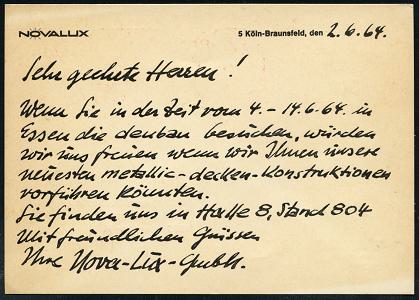 NOVALUX
5 Köln-Braunsfeld, den 2.6.64.
Sehr geehrte Herren!
Wenn Sie in der Zeit vom 4.-14.6.64. in
Essen die deubau besuchen, würden
wir uns freuen wenn wir Ihnen unsere
neuesten metallic-decken-Konstruktionen
vorführen könnten.
Sie finden uns in Halle 8, Stand 804
Mit freundlichen Grüssen
Ihre Nova-Lux-GmbH.